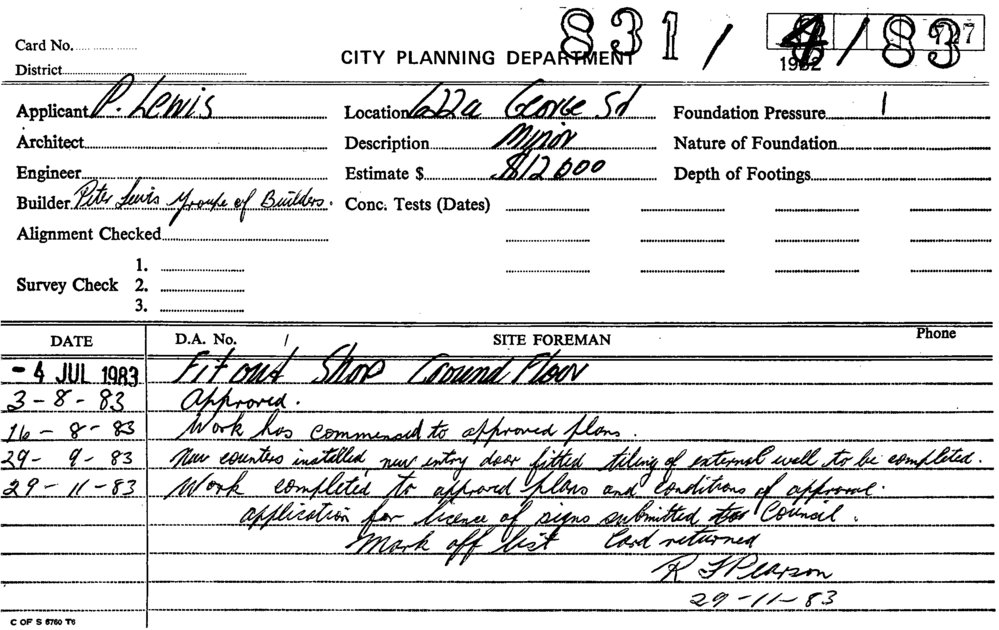 831 / 4 / 83
Card No.
CITY PLANNING DEPARTMENT
1982
District
Applicant P. Lewis Location 622a George St Foundation Pressure 1
Architect Description Minor Nature of Foundation
Engineer Estimate $ $12000 Depth of Footings
Builder Peter Lewis Groupe of Builders. Conc. Tests (Dates)
Alignment Checked
1.
Survey Check 2.
3.
DATE D.A. No. / SITE FOREMAN Phone
- 4 JUL 1983 Fitout Shop Ground Floor
3 - 8 - 83 Approved.
16 - 8 - 83 Work has commensed to approved plans.
29 - 9 - 83 New counters installed, new entry door fitted tiling of external wall to be completed.
29 - 11 - 83 Work completed to approved plans and conditions of approval.
application for licence of signs submitted Council.
Mark off list Card returned
R F Pearson
29 - 11 - 83
C OF S 6760 T6